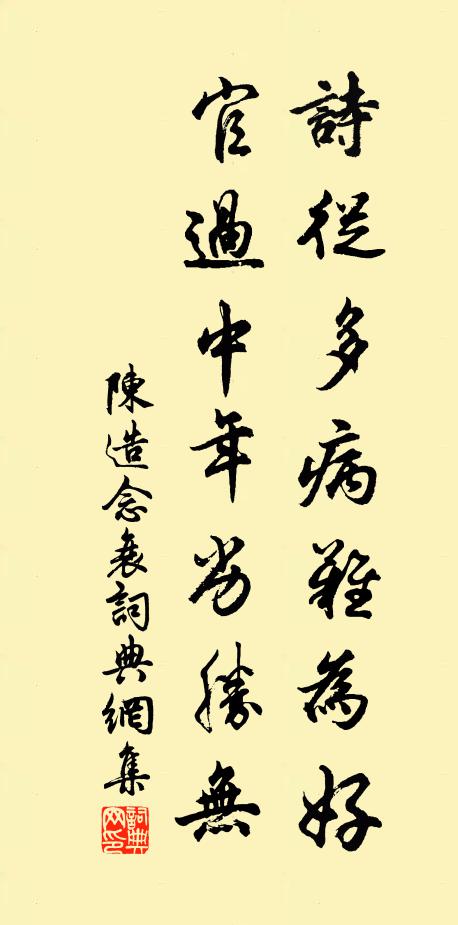 詩從多病難為好
官過中年劣勝無
陳造念衰詞典網集
詞典網印